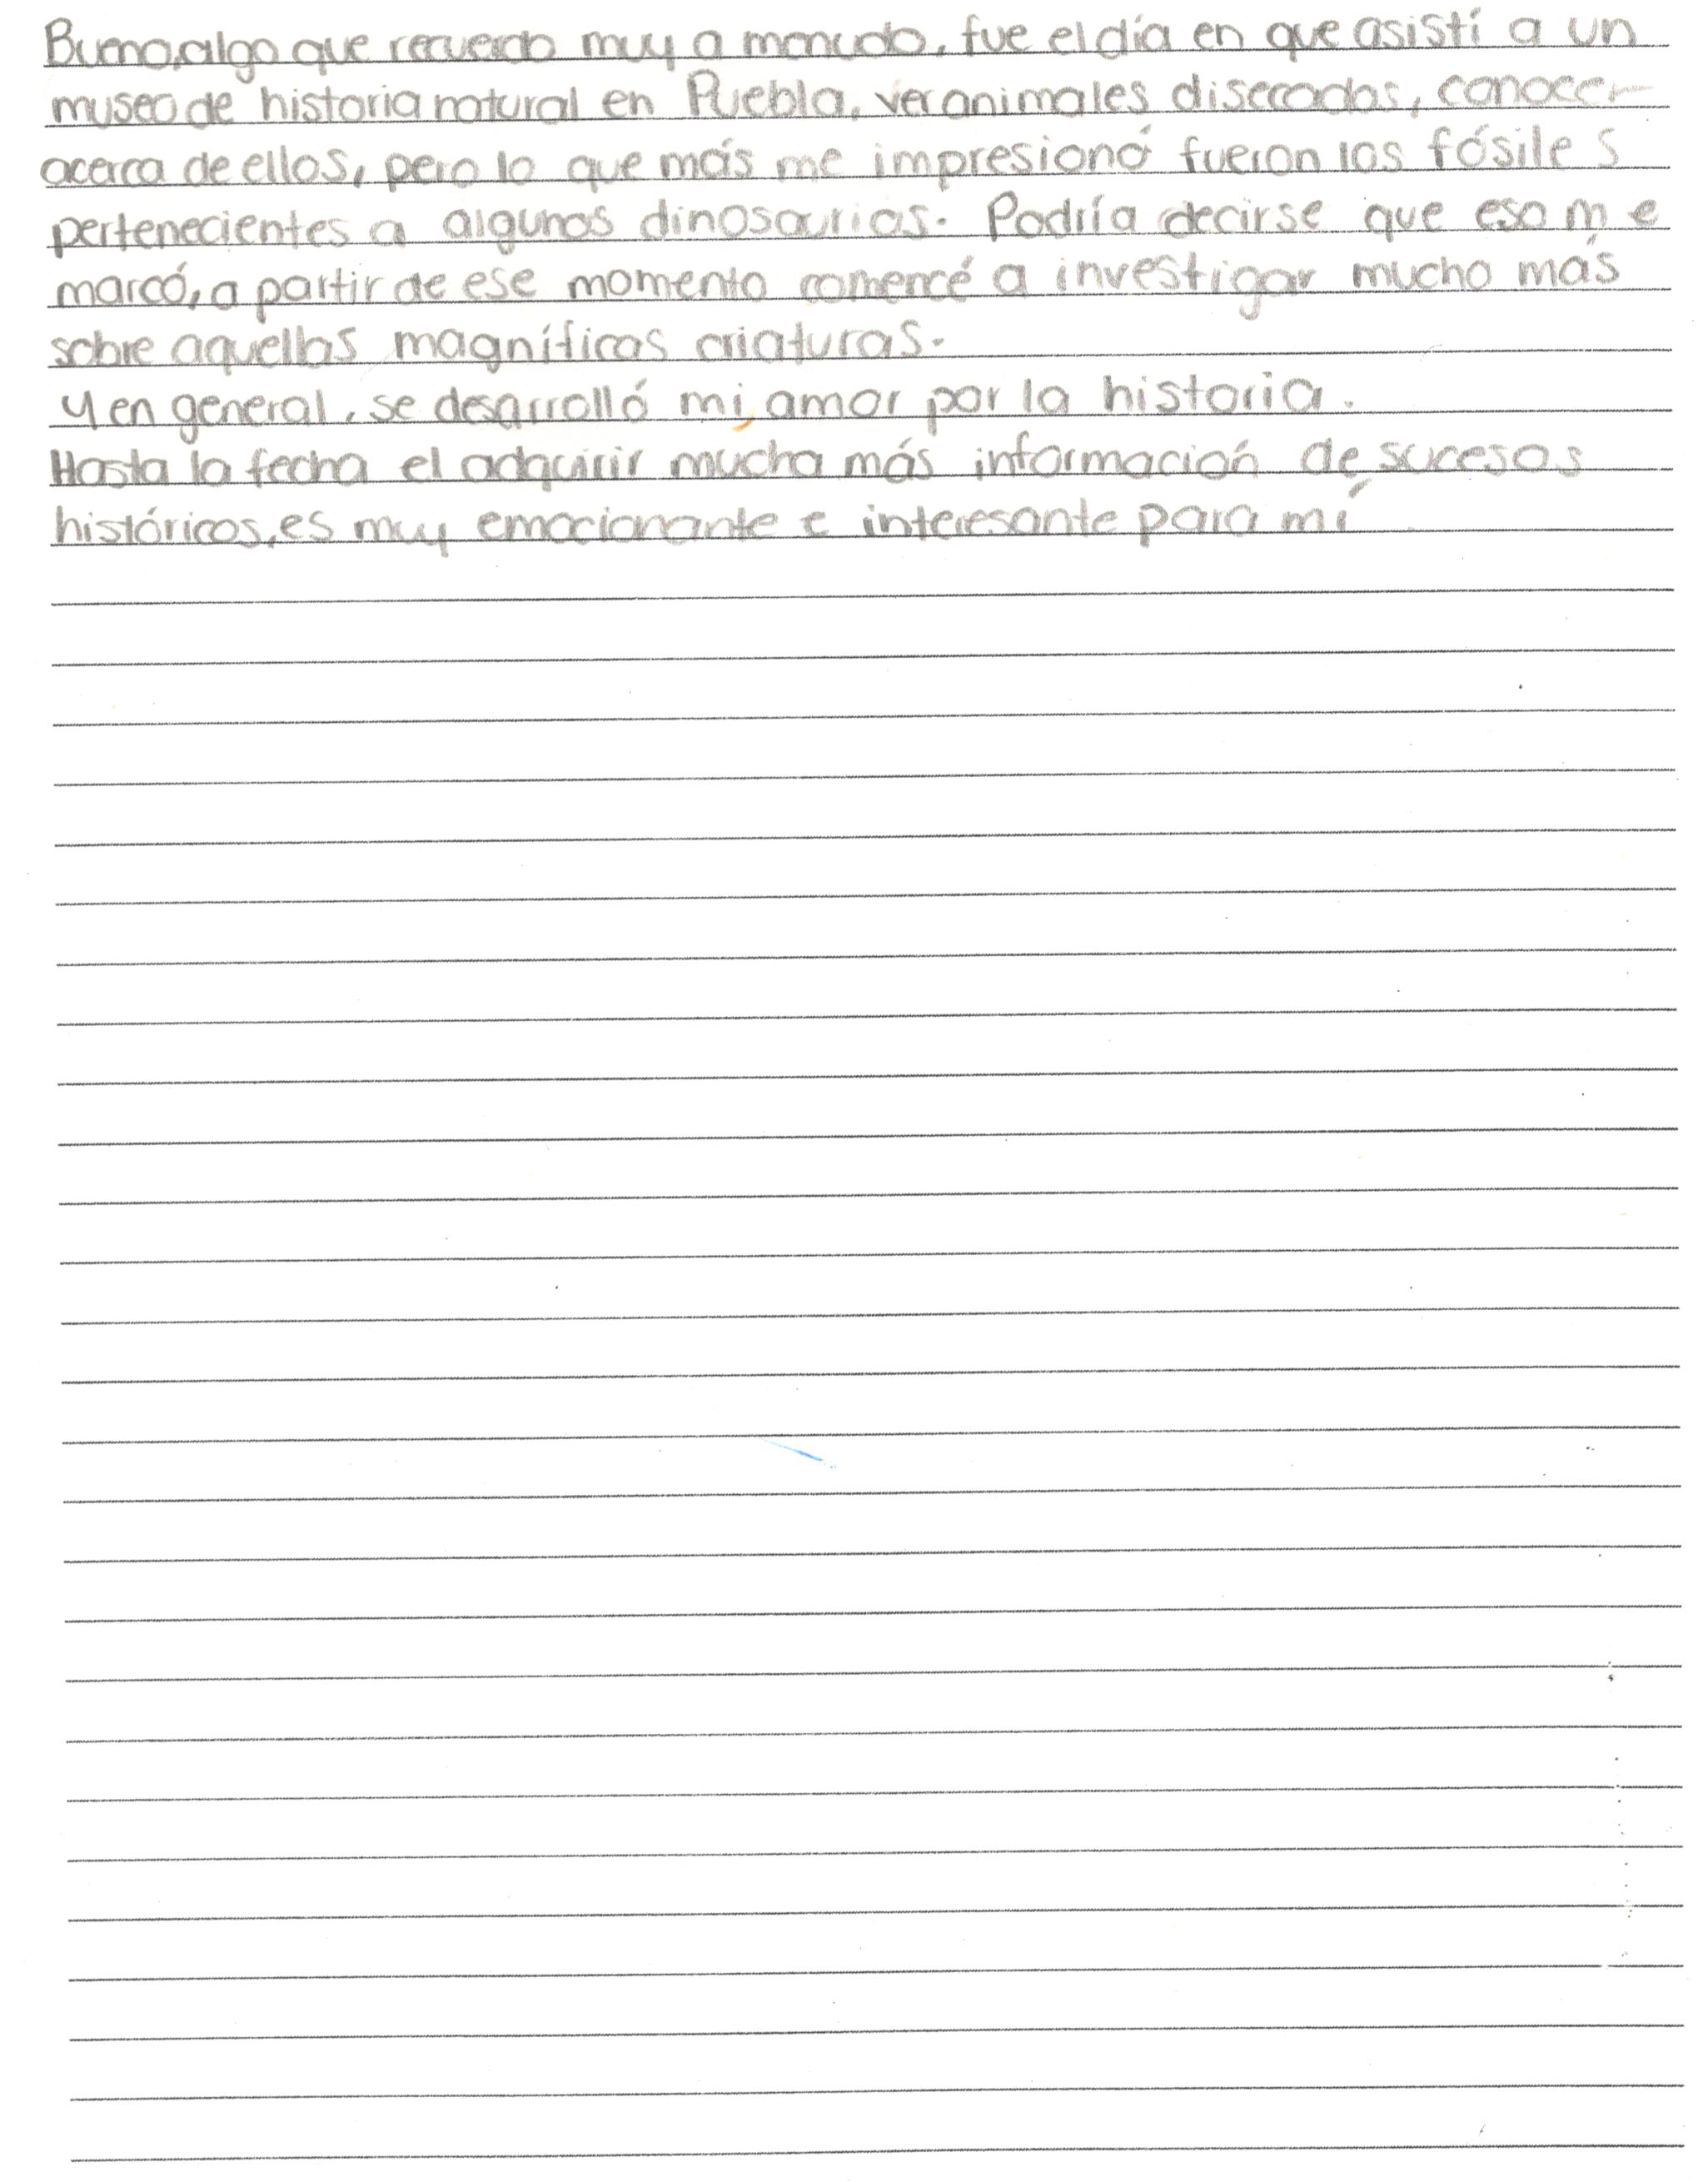 Bueno, algo que recuerdo muy a menudo, fue el día en que asistí a un
museo de historia natural en Puebla, ver animales disecados, conocer
acerca de ellos, pero lo que más me impresionó fueron los fósiles
pertenecientes a algunos dinosaurios. Podría decirse que eso me
marcó, a partir de ese momento comencé a investigar mucho más
sobre aquellas magníficas criaturas.
Y en general, se desarrolló mi amor por la historia.
Hasta la fecha el adquirir mucha más información de sucesos
históricos, es muy emocionante e interesante para mí